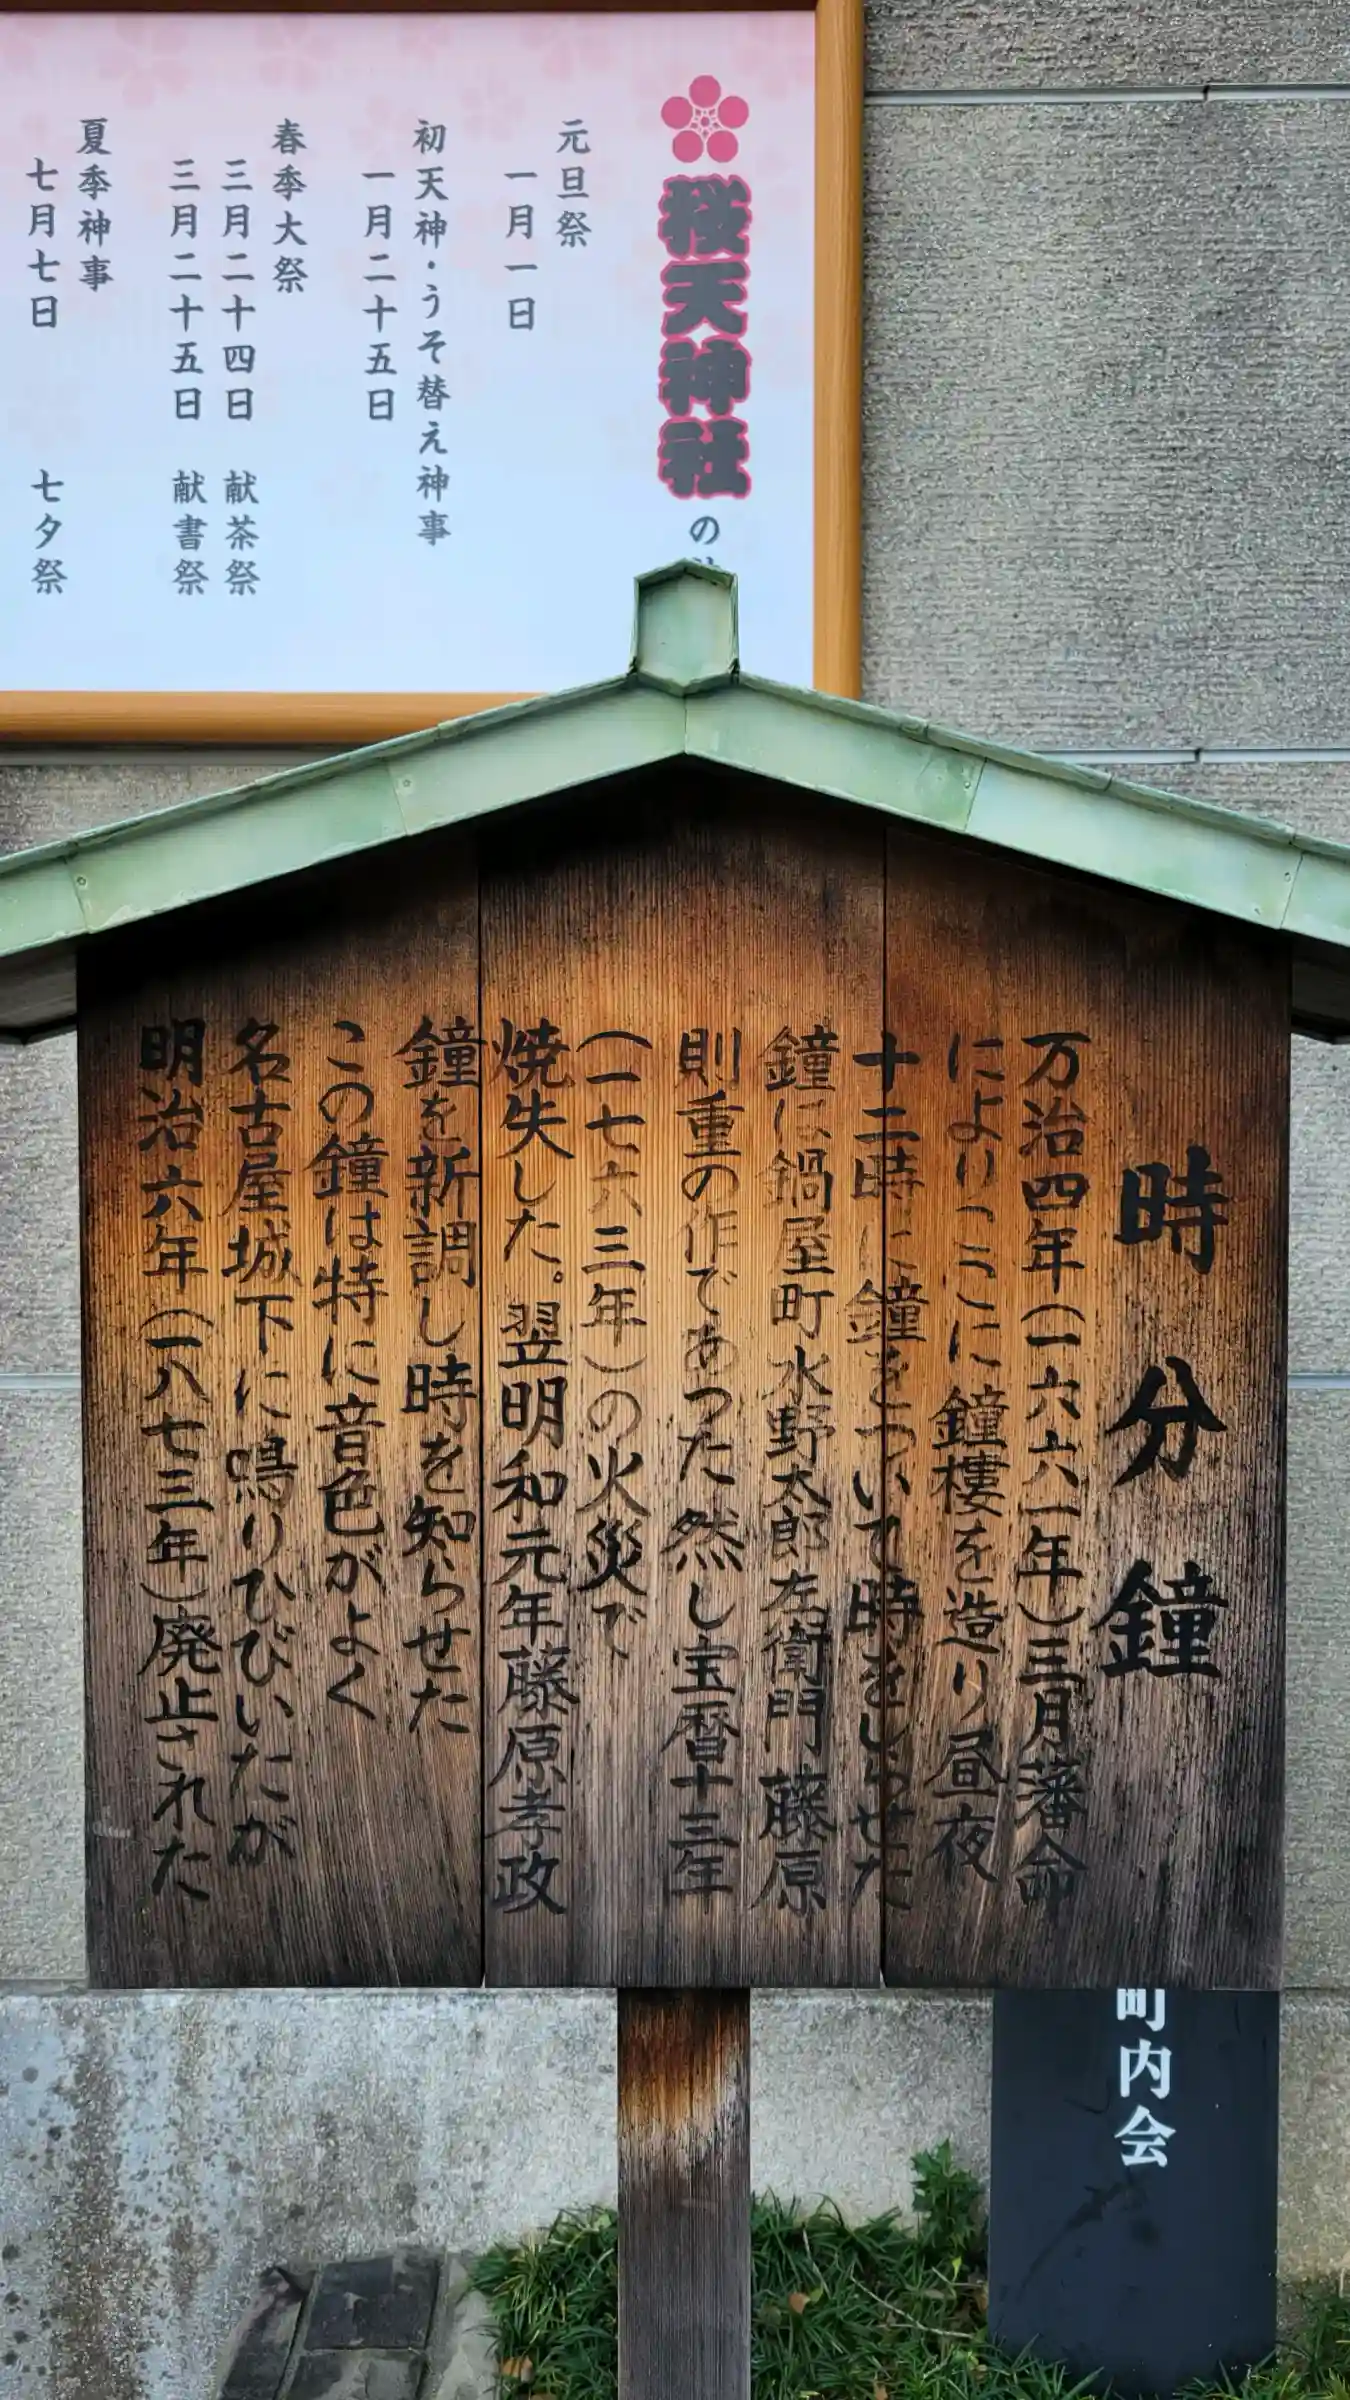 桜天神社の
元旦祭
一月一日
初天神・うそ替え神事
一月二十五日
春季大祭
三月二十四日 献茶祭
三月二十五日 献書祭
夏季神事
七月七日 七夕祭
時分鐘
万治四年(一六六一年)三月藩命
によりここに鐘樓を造り昼夜
十二時に鐘をついて時をしらせた
鐘は鍋屋町水野太郎左衛門藤原
則重の作であった然し宝暦十三年
(一七六三年)の火災で
焼失した。翌明和元年藤原孝政
鐘を新調し時を知らせた
この鐘は特に音色がよく
名古屋城下に鳴りひびいたが
明治六年(一八七三年)廃止された
町内会